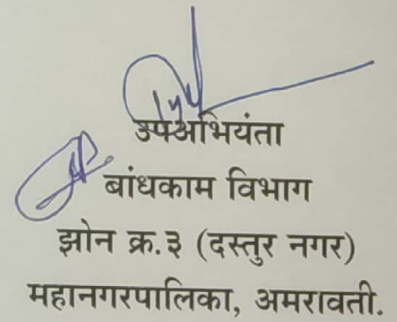 उपअभियंता
बांधकाम विभाग
झोन क्र.३ (दस्तुर नगर)
महानगरपालिका, अमरावती.